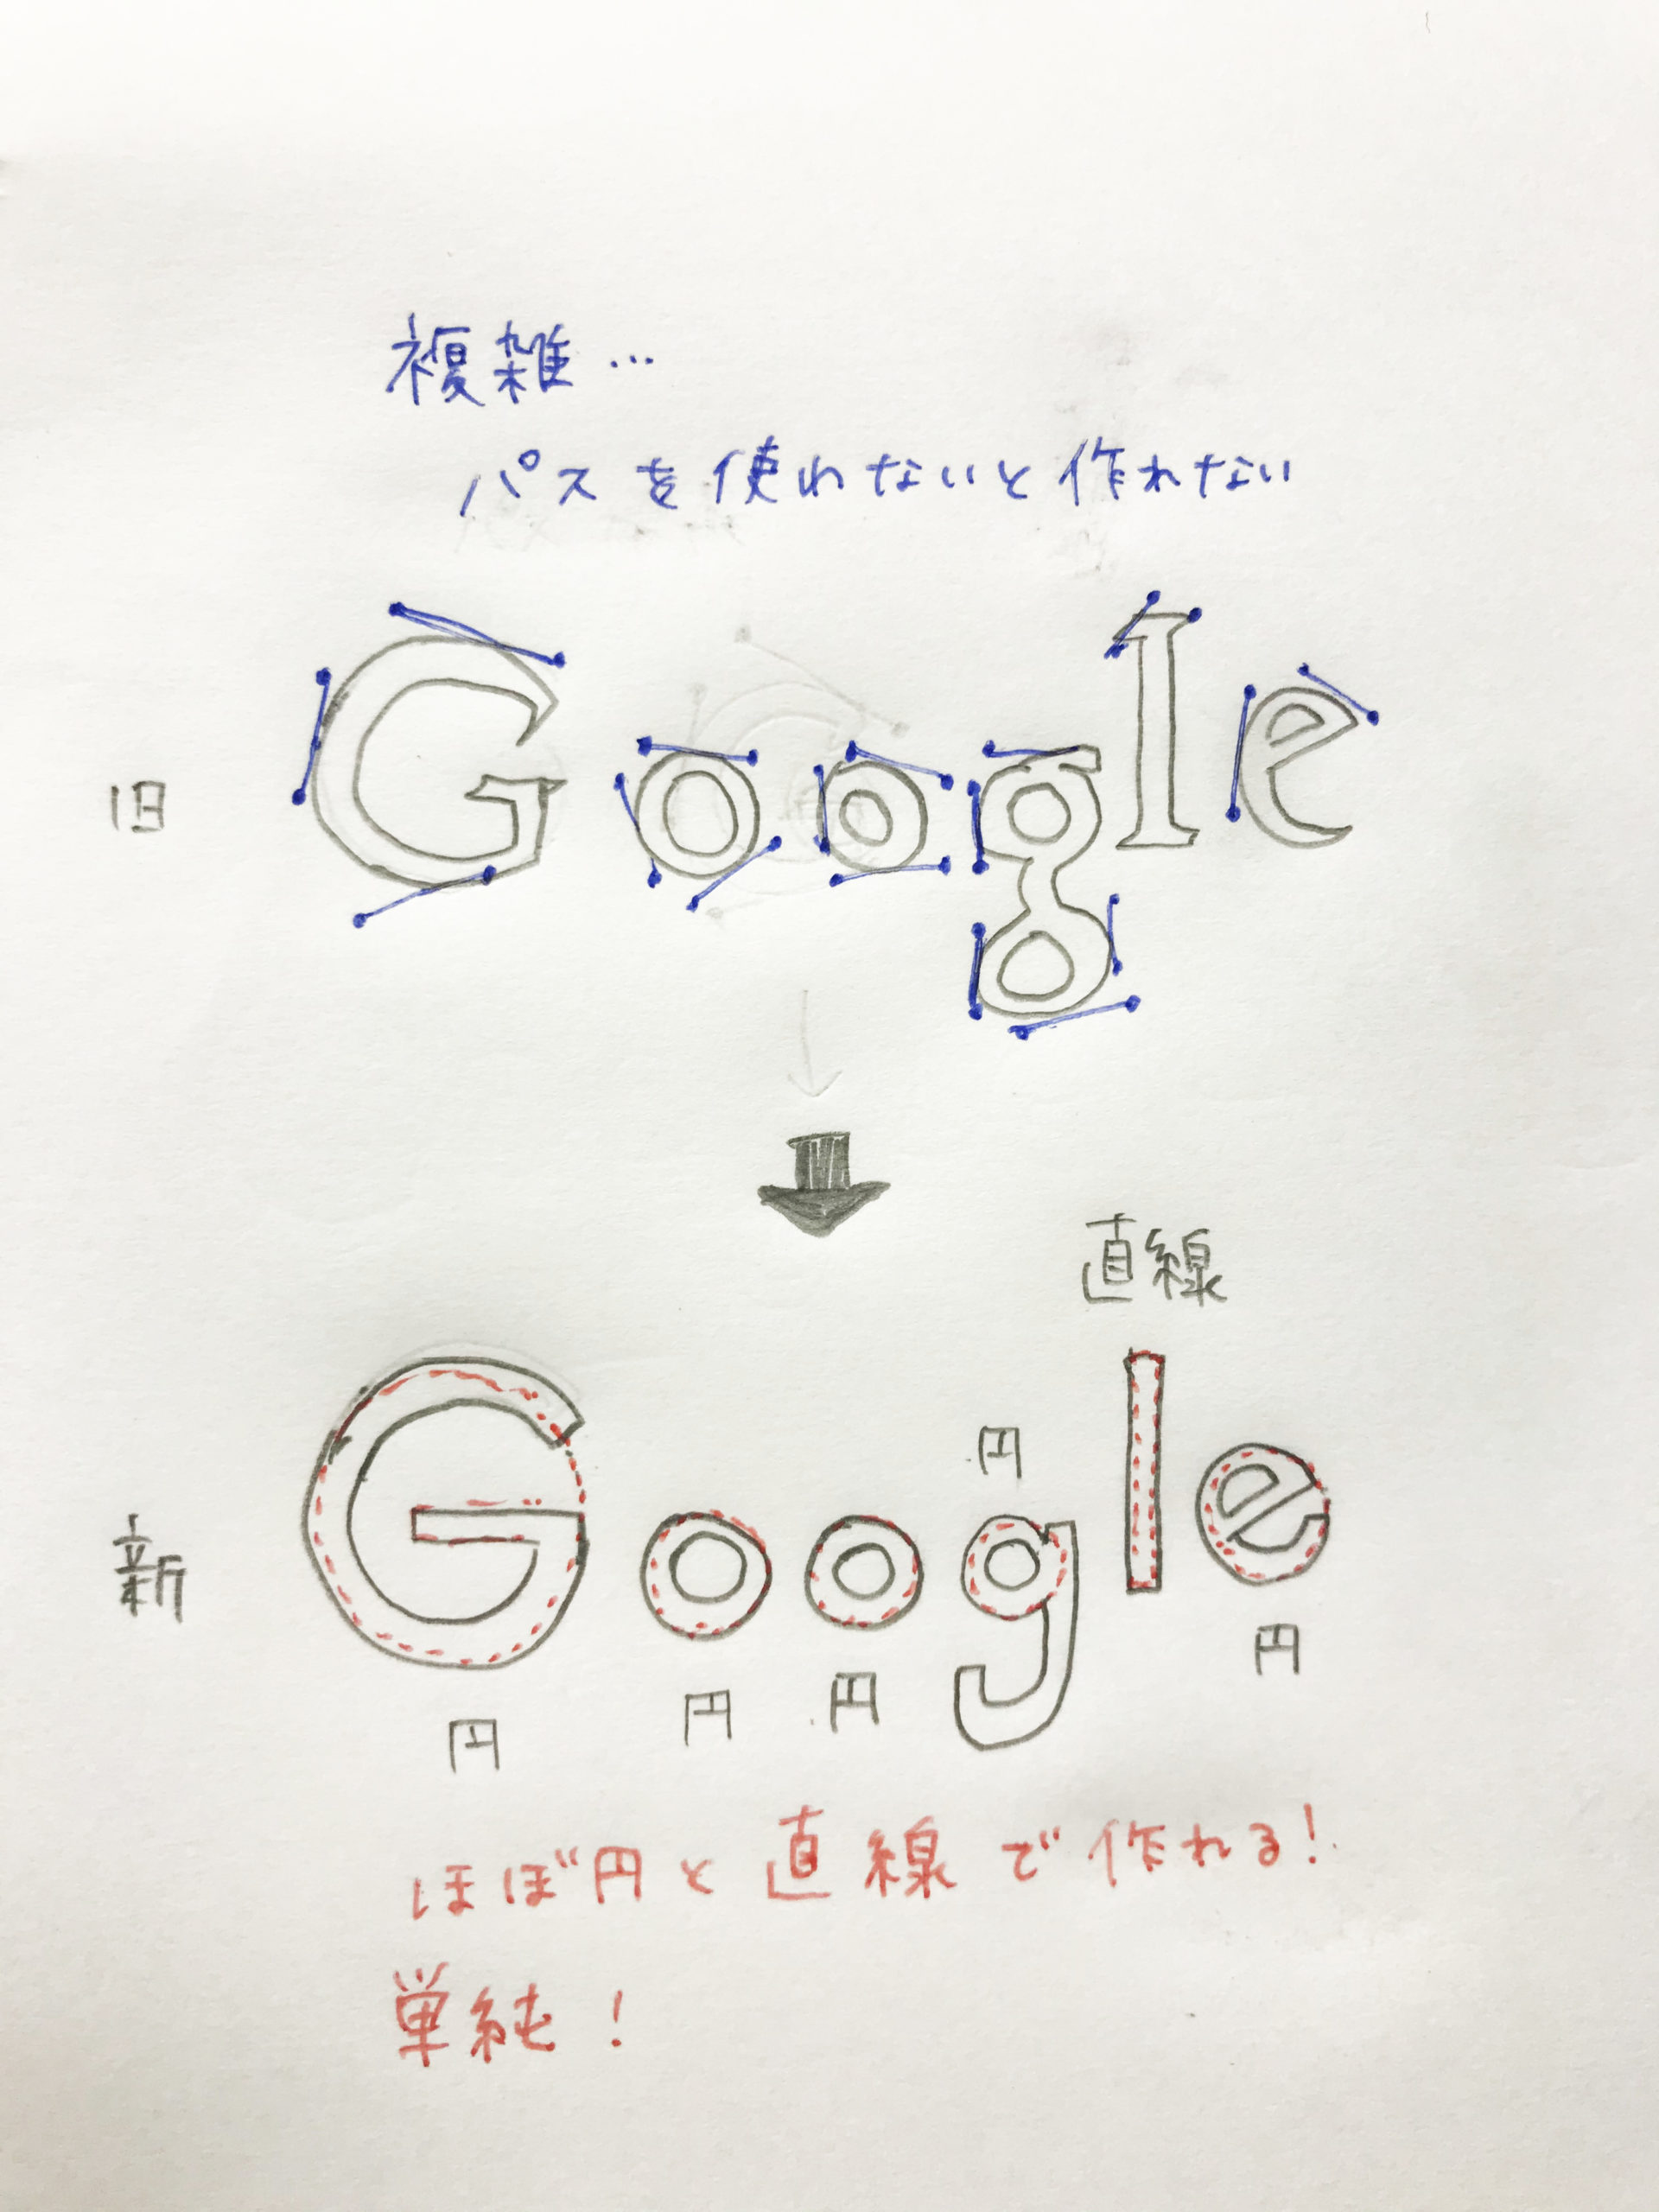 複雑…
パスを使れないと作れない
旧
Google
直線
新
Google
円
円
円
円
円
ほぼ円と直線で作れる!
単純!